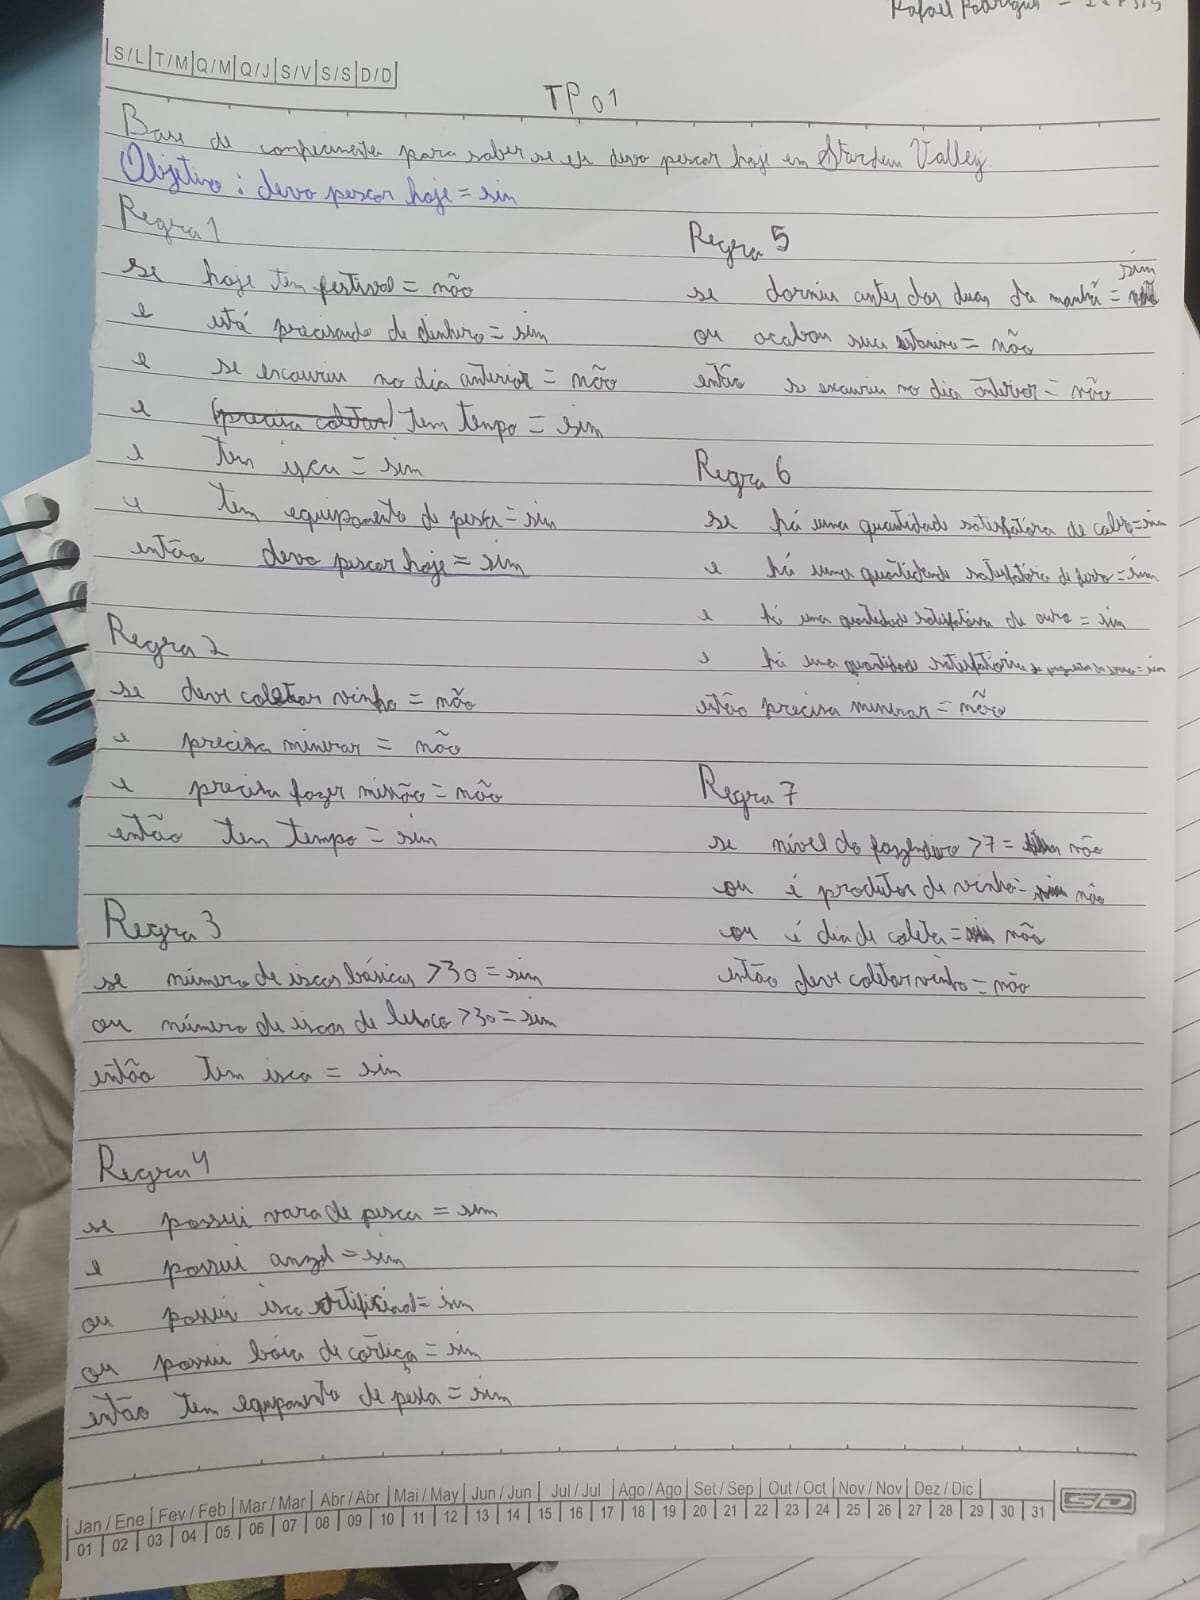 Rafael Rodrigues -
S/L T/M Q/M Q/J S/V S/S D/D
TP 01
Base de conhecimento para saber se eu devo pescar hoje em Stardew Valley.
Objetivo: devo pescar hoje = sim
Regra 1
se hoje tem festival = não
e está precisando de dinheiro = sim
e se exauriu no dia anterior = não
e (precisa coletar) tem tempo = sim
e tem isca = sim
e tem equipamento de pesca = sim
então devo pescar hoje = sim
Regra 2
se deve coletar vinho = não
e precisa minerar = não
e precisa fazer missão = não
então tem tempo = sim
Regra 3
se número de iscas básicas >30 = sim
ou número de iscas de luxo >30 = sim
então tem isca = sim
Regra 4
se possui vara de pesca = sim
e possui anzol = sim
ou possui isca artificial = sim
ou possui boia de cortiça = sim
então tem equipamento de pesca = sim
Regra 5
sim
se dormiu antes das duas da manhã =
ou acabou sua estamina = não
então se exauriu no dia anterior = não
Regra 6
se há uma quantidade satisfatória de cobre = sim
e há uma quantidade satisfatória de ferro = sim
e há uma quantidade satisfatória de ouro = sim
e há uma quantidade satisfatória de = sim
então precisa minerar = não
Regra 7
se nível do fazendeiro >7 = não
ou é produtor de vinho = não
ou é dia de coleta = não
então deve coletar vinho = não
Jan / Ene Fev / Feb Mar / Mar Abr / Abr Mai / May Jun / Jun Jul / Jul Ago / Ago Set / Sep Out / Oct Nov / Nov Dez / Dic
01 02 03 04 05 06 07 08 09 10 11 12 13 14 15 16 17 18 19 20 21 22 23 24 25 26 27 28 29 30 31
SD